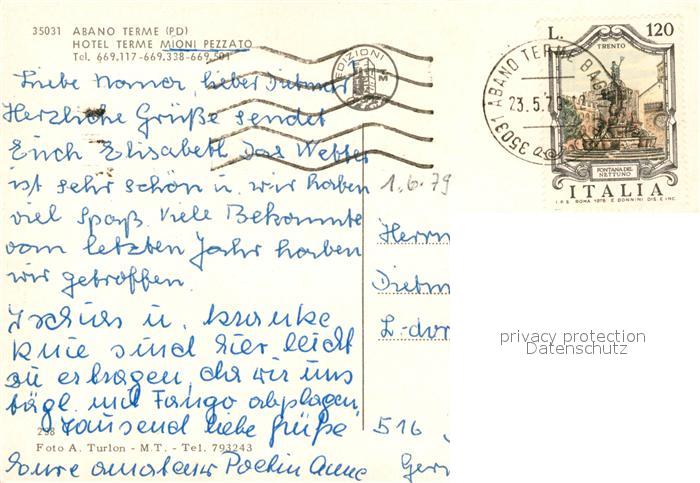 35031 ABANO TERME (PD)
HOTEL TERME MIONI PEZZATO
Tel. 669.117-669.338-669.501
Liebe Nomer, lieber Dietmar!
Herzliche Grüße sendet
Euch Elisabeth Das Wetter
ist sehr schön u. wir haben
viel Spaß. Viele Bekannte
vom letzten Jahr haben
wir getroffen.
Ischias u. kranke
Knie sind hier leicht
zu ertragen, da wir uns
tägl. mit Fango abplagen,
Tausend liebe Grüße
Eure Anne
298
Foto A. Turlon - M.T. - Tel. 793243
EDIZIONI
M
1.6.79
L. 120
TRENTO
FONTANA DEL
NETTUNO
ITALIA
I.P.S. ROMA 1978 E. DONNINI DIS. E INC.
35031 ABANO TERME
23.5.7
Herrn
Dietm
L-dor
516
Ger
privacy protection
Datenschutz